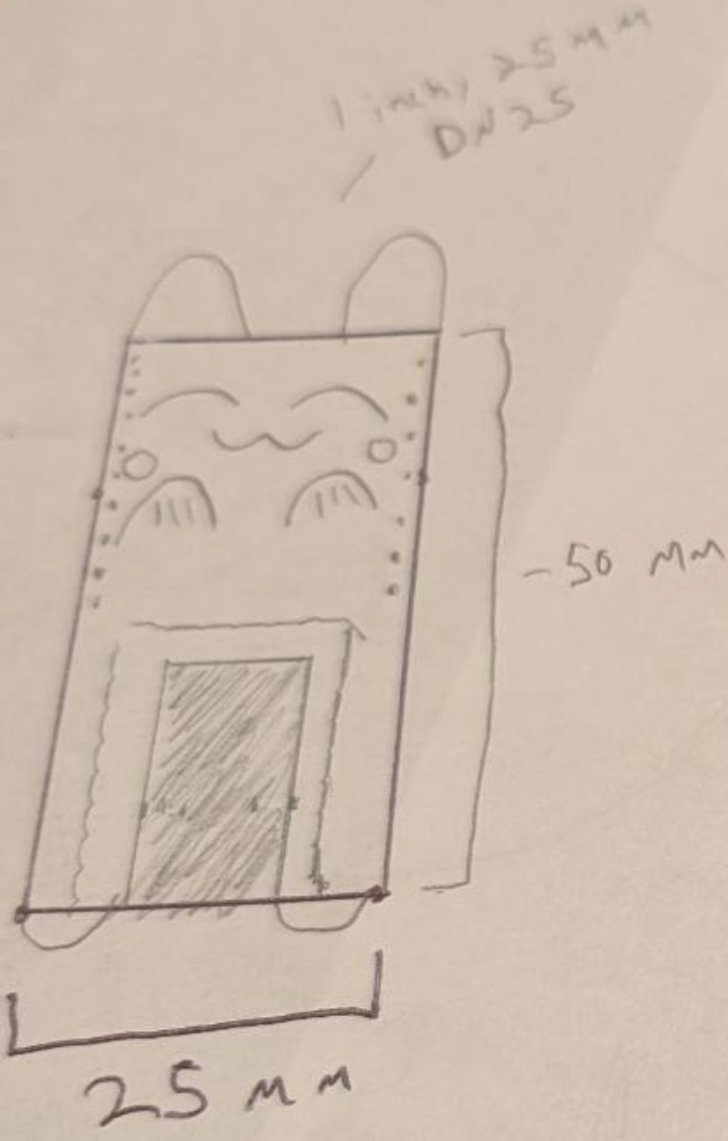 1 inch, 25 mm
DN25
-50 mm
25 mm